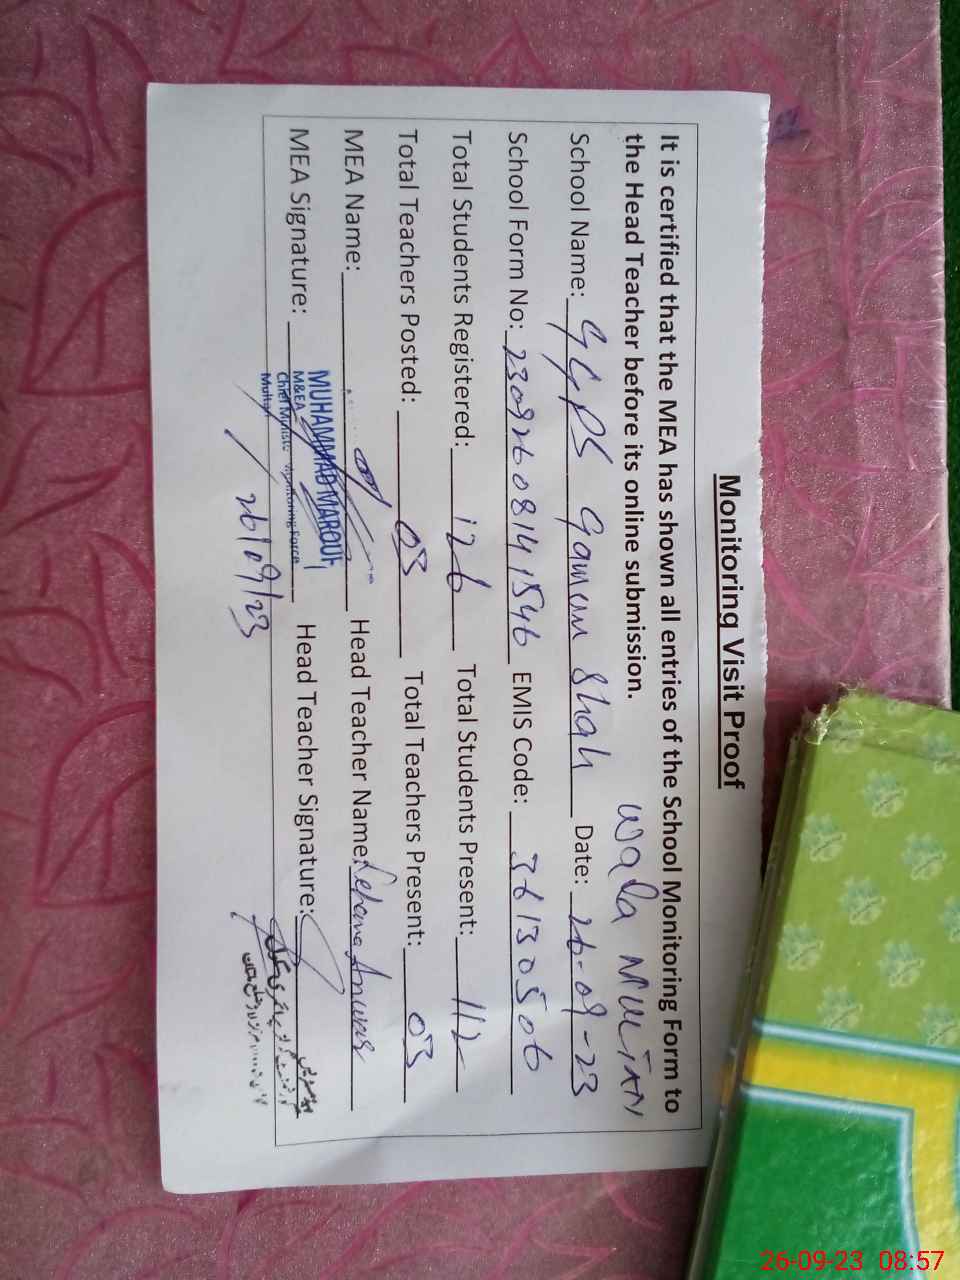 Monitoring Visit Proof
It is certified that the MEA has shown all entries of the School Monitoring Form to
the Head Teacher before its online submission.
Wala MULTAN
School Name: GGPS Gamun Shah Date: 26-09-23
School Form No: 2309260814 1546 EMIS Code: 36130506
Total Students Registered: 126 Total Students Present: 112
Total Teachers Posted: 03 Total Teachers Present: 03
MEA Name: Head Teacher Name: Rehana Anwar
MUHAMMAD MAROUF
MEA Signature: Head Teacher Signature:
M&EA
Chief Minister Monitoring Force
Multan
26/09/23
26-09-23 08:57